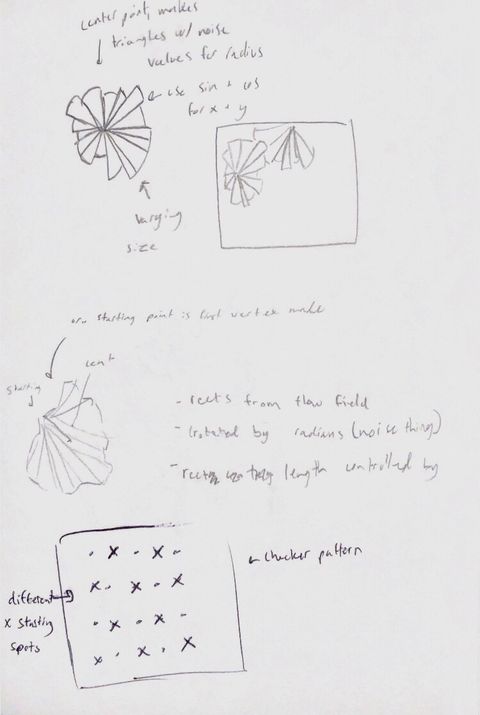 center point, makes
triangles w/ noise
values for radius
use sin + cos
for x + y
varying
size
or. starting point is last vertex made
starting
cent
- rects from flow field
- (rotated by radians (noise thing)
- rect length controlled by
. x . x .
x . x . x
. x . x .
x . x . x
checker pattern
different
x starting
spots